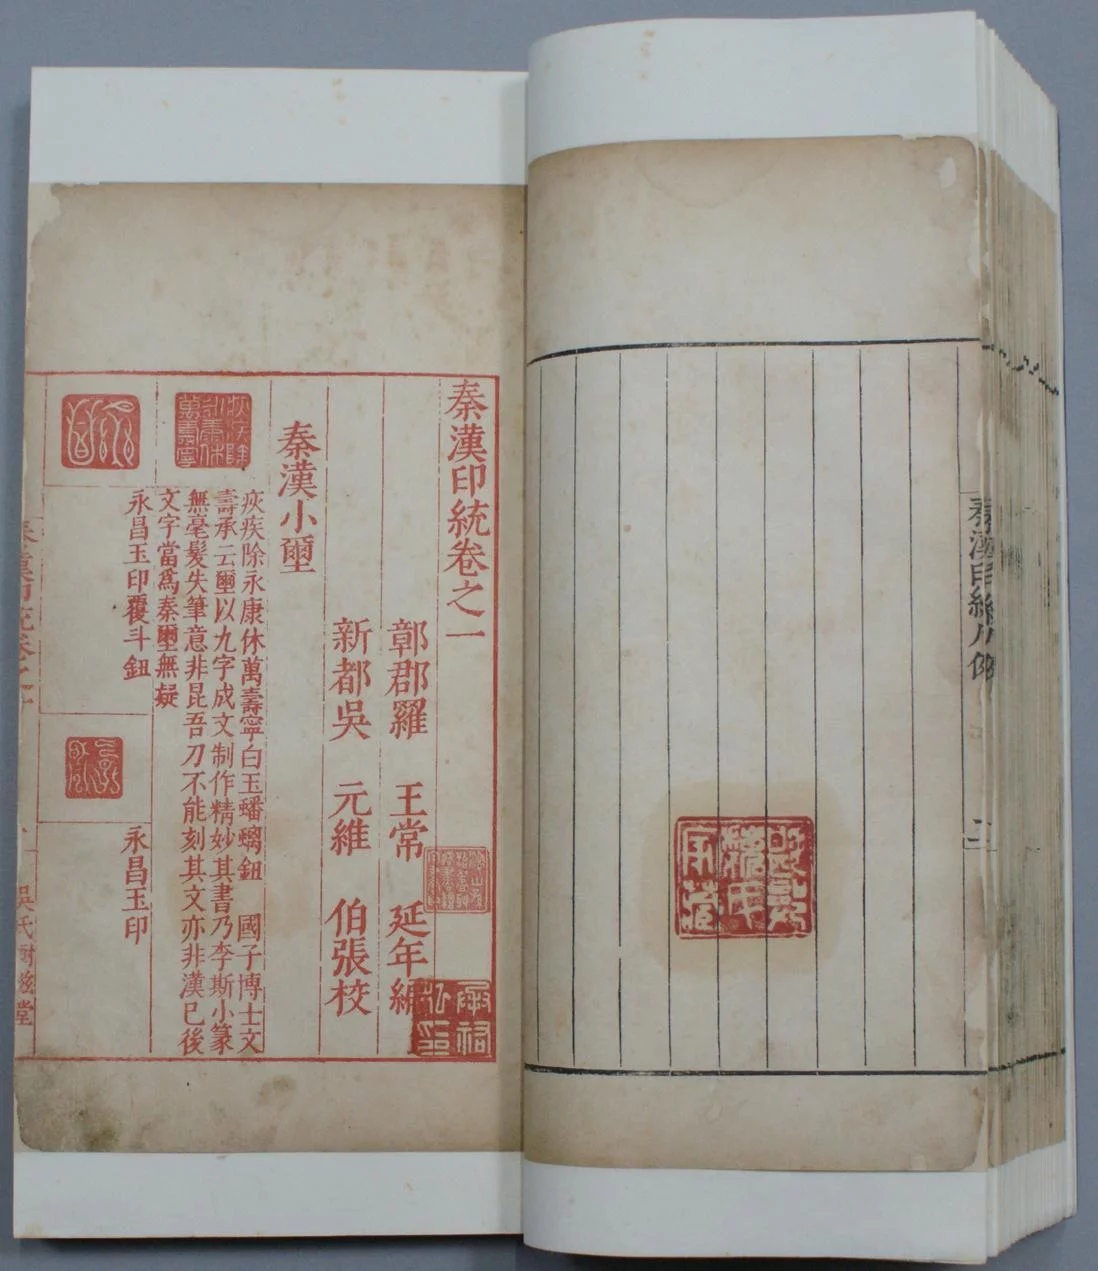 秦漢印統卷之一
鄣郡羅　王常　延年編
新都吳　元維　伯張校
秦漢小璽
疢疾除永康休萬壽寧
疢疾除永康休萬壽寧白玉蟠螭鈕　國子博士文
壽承云璽以九字成文制作精妙其書乃李斯小篆
無毫髮失筆意非昆吾刀不能刻其文亦非漢已後
文字當爲秦璽無疑
永昌
永昌玉印覆斗鈕
永昌玉印
秦漢印統卷之一
吳氏樹滋堂